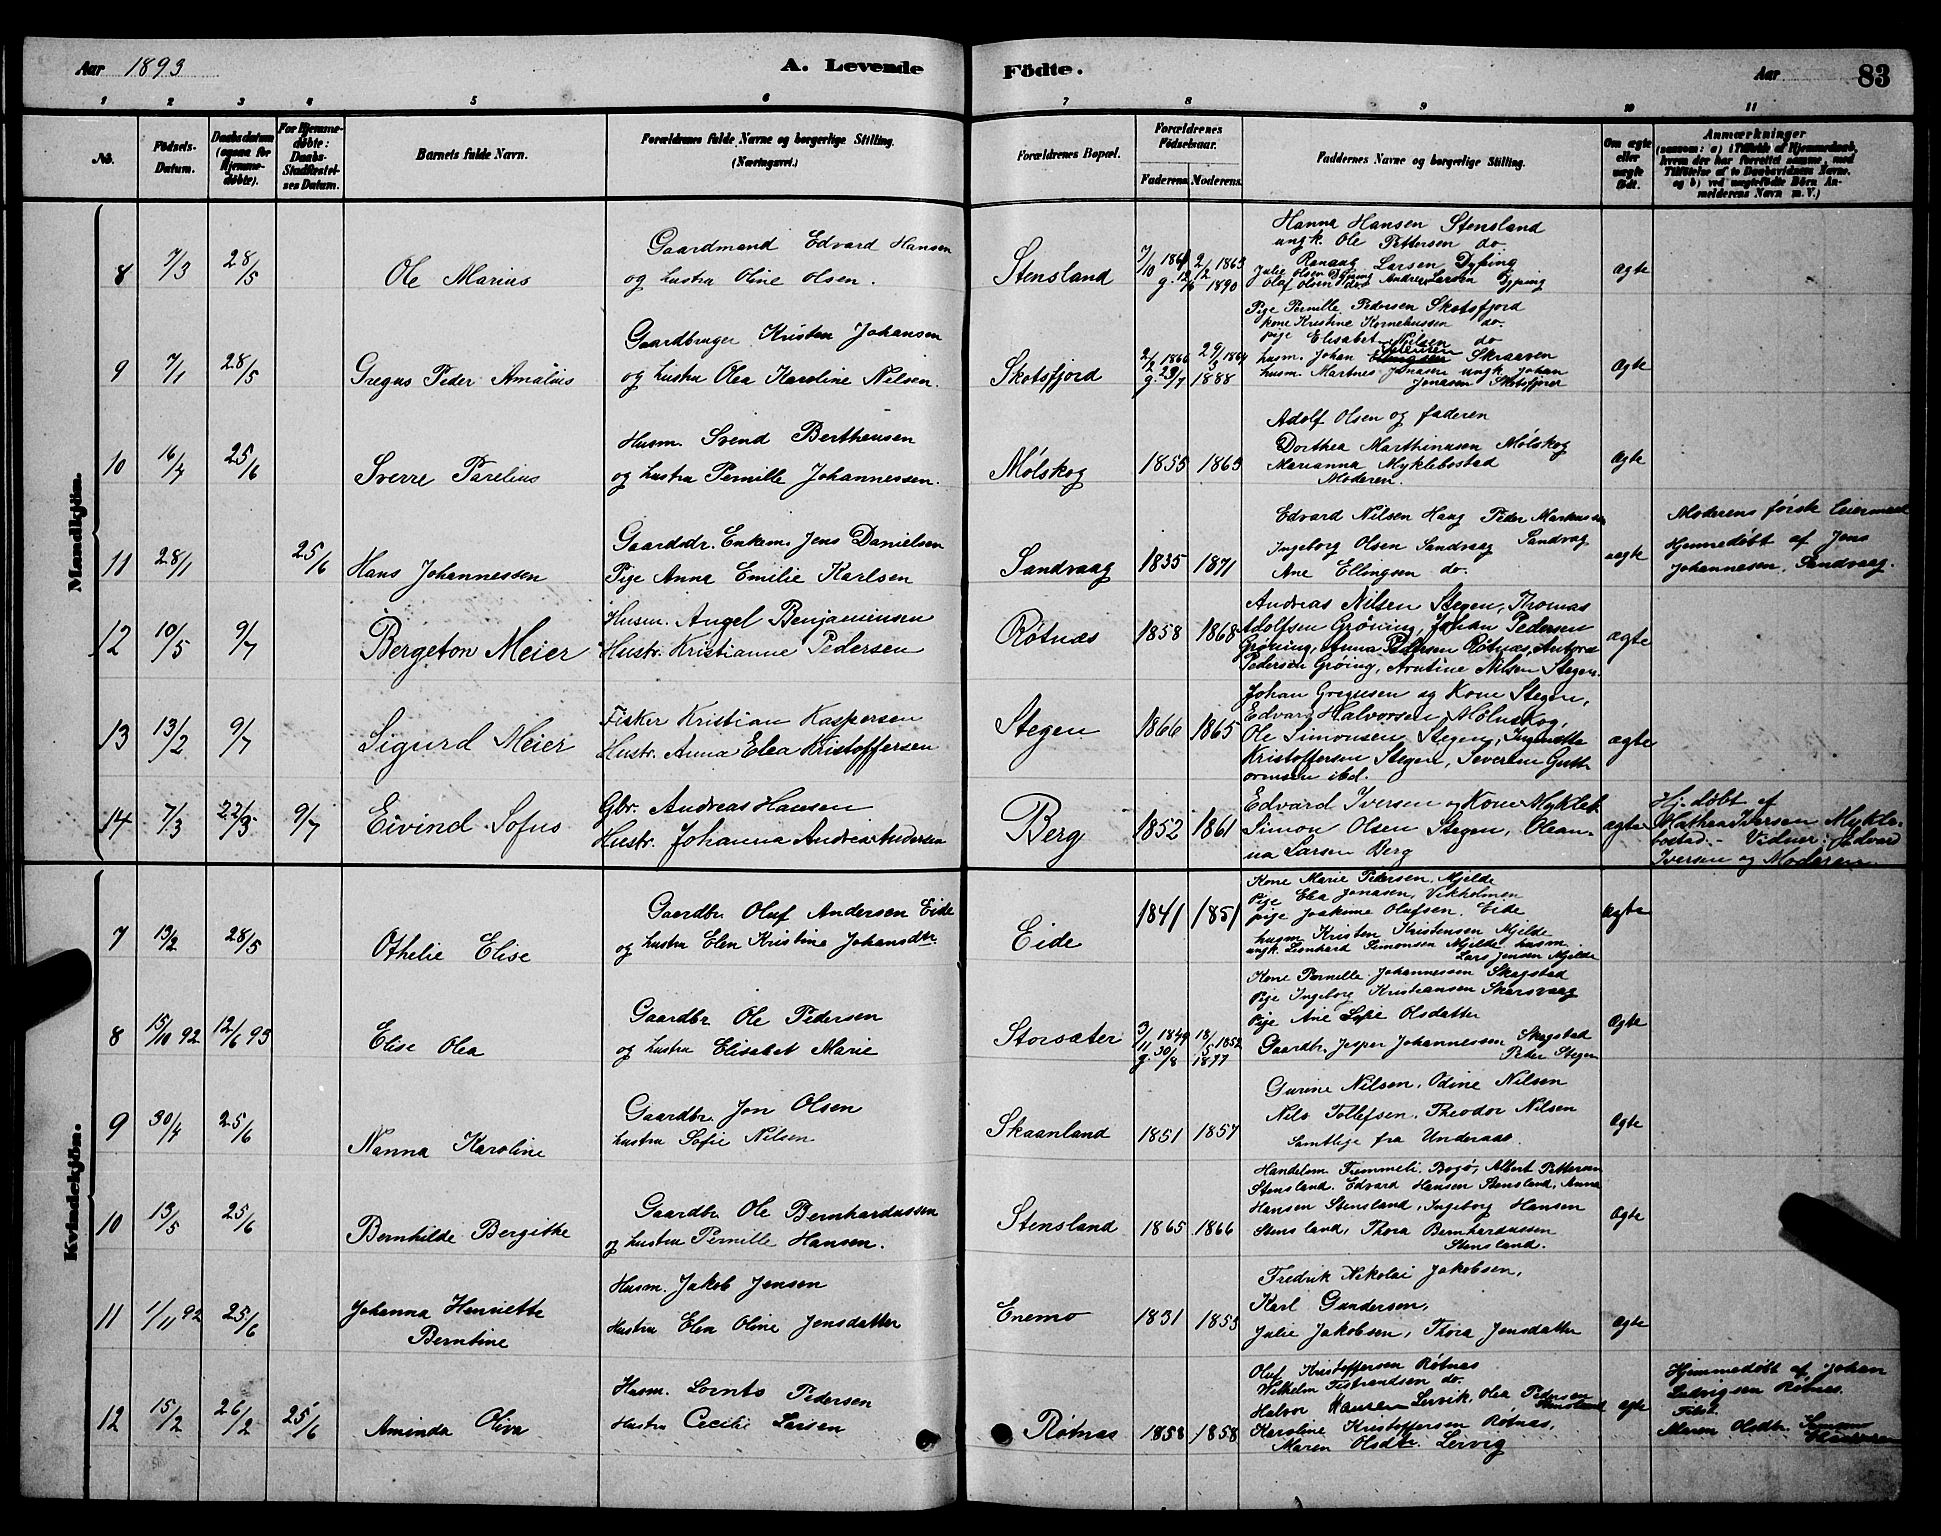 Aar 1893 A. Levende Födte. Aar 83
1 2 3 4 5 6 7 8 9 10 11
No. Födsels-Datum. Daabsdatum (ogsaa for Hjemme-döbte). For Hjemme-døbte: Daabs-Stadfæstel-ses Datum. Barnets fulde Navn. Forældrenes fulde Navne og borgerlige Stilling. (Næringsvei.) Forældrenes Bopæl. Forældrenes Födselsaar. Faderens Moderens. Faddernes Navne og borgerlige Stilling. Om ægte eller uægte født. Anmærkninger
(saasom: a) i Tilfælde af Hjemmedaab, hvem der har forrettet samme, med Tilföielse af to Daabsvidners Navne, og b) ved uægtefödte Börn An-melderens Navn m. V.)
Mandkjön.
8 7/3 28/5 Ole Marius
Gaardmand Edvard Hansen
og hustru Oline Olsen.
Stensland 7/10 1861 2/2 1863
g. 12/6 1890
Hanna Hansen Stensland
ungk. Ole Pettersen do
Ranaug Larsen Dyping
Julie Olsen Dyping Andreas Larsen
Olaf Olsen do Dyping
ægte
9 7/1 28/5 Gregus Peder Amalius
Gaardbruger Kristen Johansen
og hustru Olea Karoline Nilsen.
Skotsfjord 2/2 1866 29/3 1864
g. 29/7 1888
Pige Pernille Pedersen Skotsfjord
kone Kristine Korneliussen do.
pige Elisabet Nilsen do
husm. Johan Skraaven
husm. Martnes Jonasen ungk. Johan
Jonasen Skotsfjord
ægte
10 16/4 25/6 Sverre Parelius
Husm. Svend Bertheusen
og hustru Pernille Johannessen.
Mölskog 1855 1863
Adolf Olsen og faderen
Dorthea Marthinusen Mölskog
Marianna Myklebostad
Moderen.
ægte
11 28/1 25/6 Hans Johannessen
Gaardbr. Enkem. Jens Danielsen
Pige Anna Emilie Karlsen
Sandvaag 1835 1871
Edvard Nilsen Haug Peder Markussen
Ingeborg Olsen Sandvaag Sandvag
Ane Ellingsen do.
uegte
Moderens første Leiermaal
Hjemmedöbt af Jens
Johannesen, Sandvaag.
12 10/5 9/7 Bergeton Meier
Husm. Angel Benjaminsen
Hustr. Kristianne Pedersen
Røtnæs 1858 1868
Andreas Nilsen Stegen, Thomas
Adolfsen Grøning, Johan Pedersen
Grøning, Anna Pedersen Røtnæs,
Pedersen Grøing, Arntine Nilsen Stegen.
ægte
13 13/2 9/7 Sigurd Meier
Fisker Kristian Kaspersen
Hustr. Anna Elea Kristoffersen
Stegen 1866 1865
Johan Gregusen og Kone Stegen,
Edvard Halvorsen, Mölnskog,
Ole Simonsen Stegen, Ingmette
Kristoffersen Stegen, Severine Gutt-
ormsen ibd.
ægte
14 7/3 22/3 9/7 Eivind Sofus
Gbr. Andreas Hansen
Hustr. Johanna Andrea Andersen
Berg 1852 1861
Edvard Iversen og Kone Mykleb.
Simon Olsen Stegen, Olean-
na Larsen Berg
ægte
Hj. døbt af
Mathea Iversen Mykle-
bostad. - Vidner: Edvard
Iversen og Moderen
Kvindekjön.
7 13/2 28/5 Othelie Elise
Gaardbr Oluf Andersen Eide
og hustru Elen Kristina Johansdtr
Eide 1841 1851
Kone Marie Pedersen, Mjelde
Pige Elea Jonasen, Vikholmen
pige Joakime Olufsen, Eide
husm Kristen Kristensen Mjelde
ungk. Lenhard Simonsen Mjelde husm
Lars Jensen Mjelde
ægte
8 15/10 92 12/6 93 Elise Olea
Gaardbr Ole Pedersen
og hustru Elisabet Marie
Storsæter 3/11 1849 18/5 1852
g. 30/8 1877
Kone Pernille Johannessen Skagstad
Pige Ingeborg Kristiansen Skarsvaag
Pige Ane Sofie Olsdatter
Gaardbr. Jesper Johannessen Skagstad
Peter Stegen
ægte
9 30/4 25/6 Nanna Karoline
Gaardbr. Jon Olsen
hustru Sofie Nilsen
Skaanland 1851 1857
Gurine Nilsen, Odine Nilsen
Nils Tollefsen, Theodor Nilsen
Samtlige fra Underaas.
ægte
10 13/5 25/6 Bernhilde Bergitte
Gaardbr Ole Bernhardussen
og hustru Pernille Hansen.
Stensland 1865 1866
Handelsm. Bogø, Albert Pettersen
Stensland. Edvard Hansen Stensland, Anna
Hansen Stensland, Ingeborg Hansen
Stensland, Thora Bernhardussen
Stensland.
ægte
11 1/11 92 25/6 Johanna Henriette
Berntine
Husm. Jakob Jensen
Hustru Elen Oline Jensdatter
Enemo 1831 1853
Fredrik Nikolai Jakobsen,
Karl Gundersen,
Julie Jakobsen, Thora Jensdatter
ægte
12 15/2 26/2 25/6 Aminda Oliva
Husm. Lornts Pedersen
Hustru Cecilie Larsen
Røtnæs 1858 1858
Oluf Kristoffersen Røtnæs
Wilhelm do.
Halvor Hansen Lervik, Olea Pedersen
Stensland
Karoline Kristoffersen Røtnæs,
Maren Olsdtr. Lervig
ægte
Hjemmedöbt af Johan
Ludvigsen Røtnæs.
Maren Olsdtr.